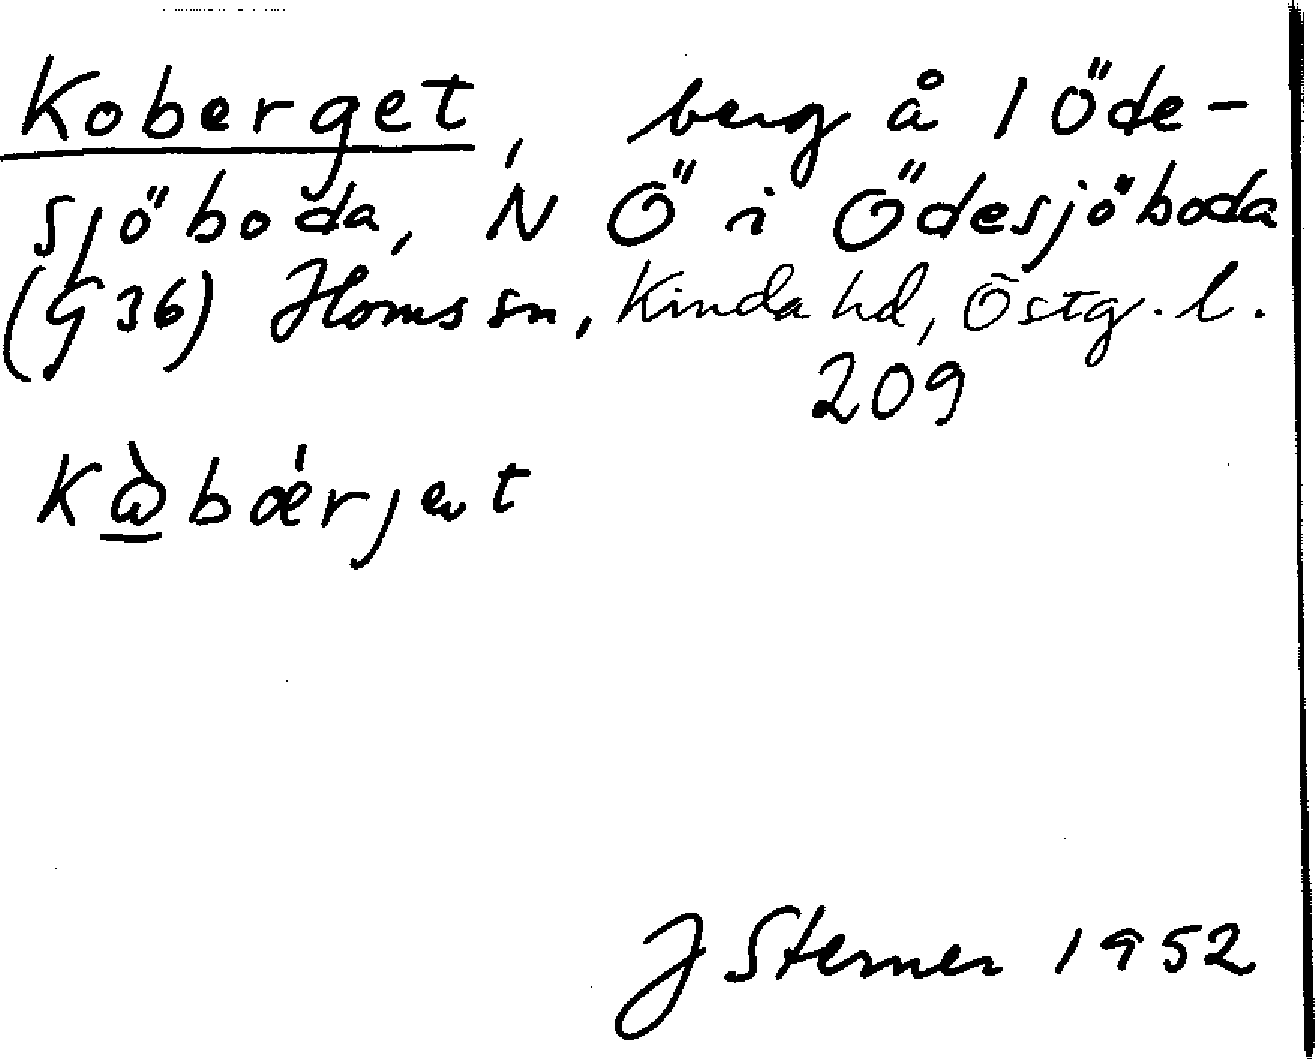 Koberget, berg å 1 Öde-
sjöboda, N Ö i Ödesjöboda
(G 36) Horns sn, Kinda hd, Östg. l.
209
Kὼ̲bǽrjət
J Sterner 1952